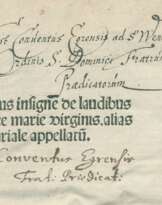 Conventus Egrensis ad S Wenc
Ordinis S. Dominici Fratrum
Prædicatorum
us insigne de laudibus
e marie virginis. alias
riale appellatū
Conventus Egrensis
Frat. Prædicat.